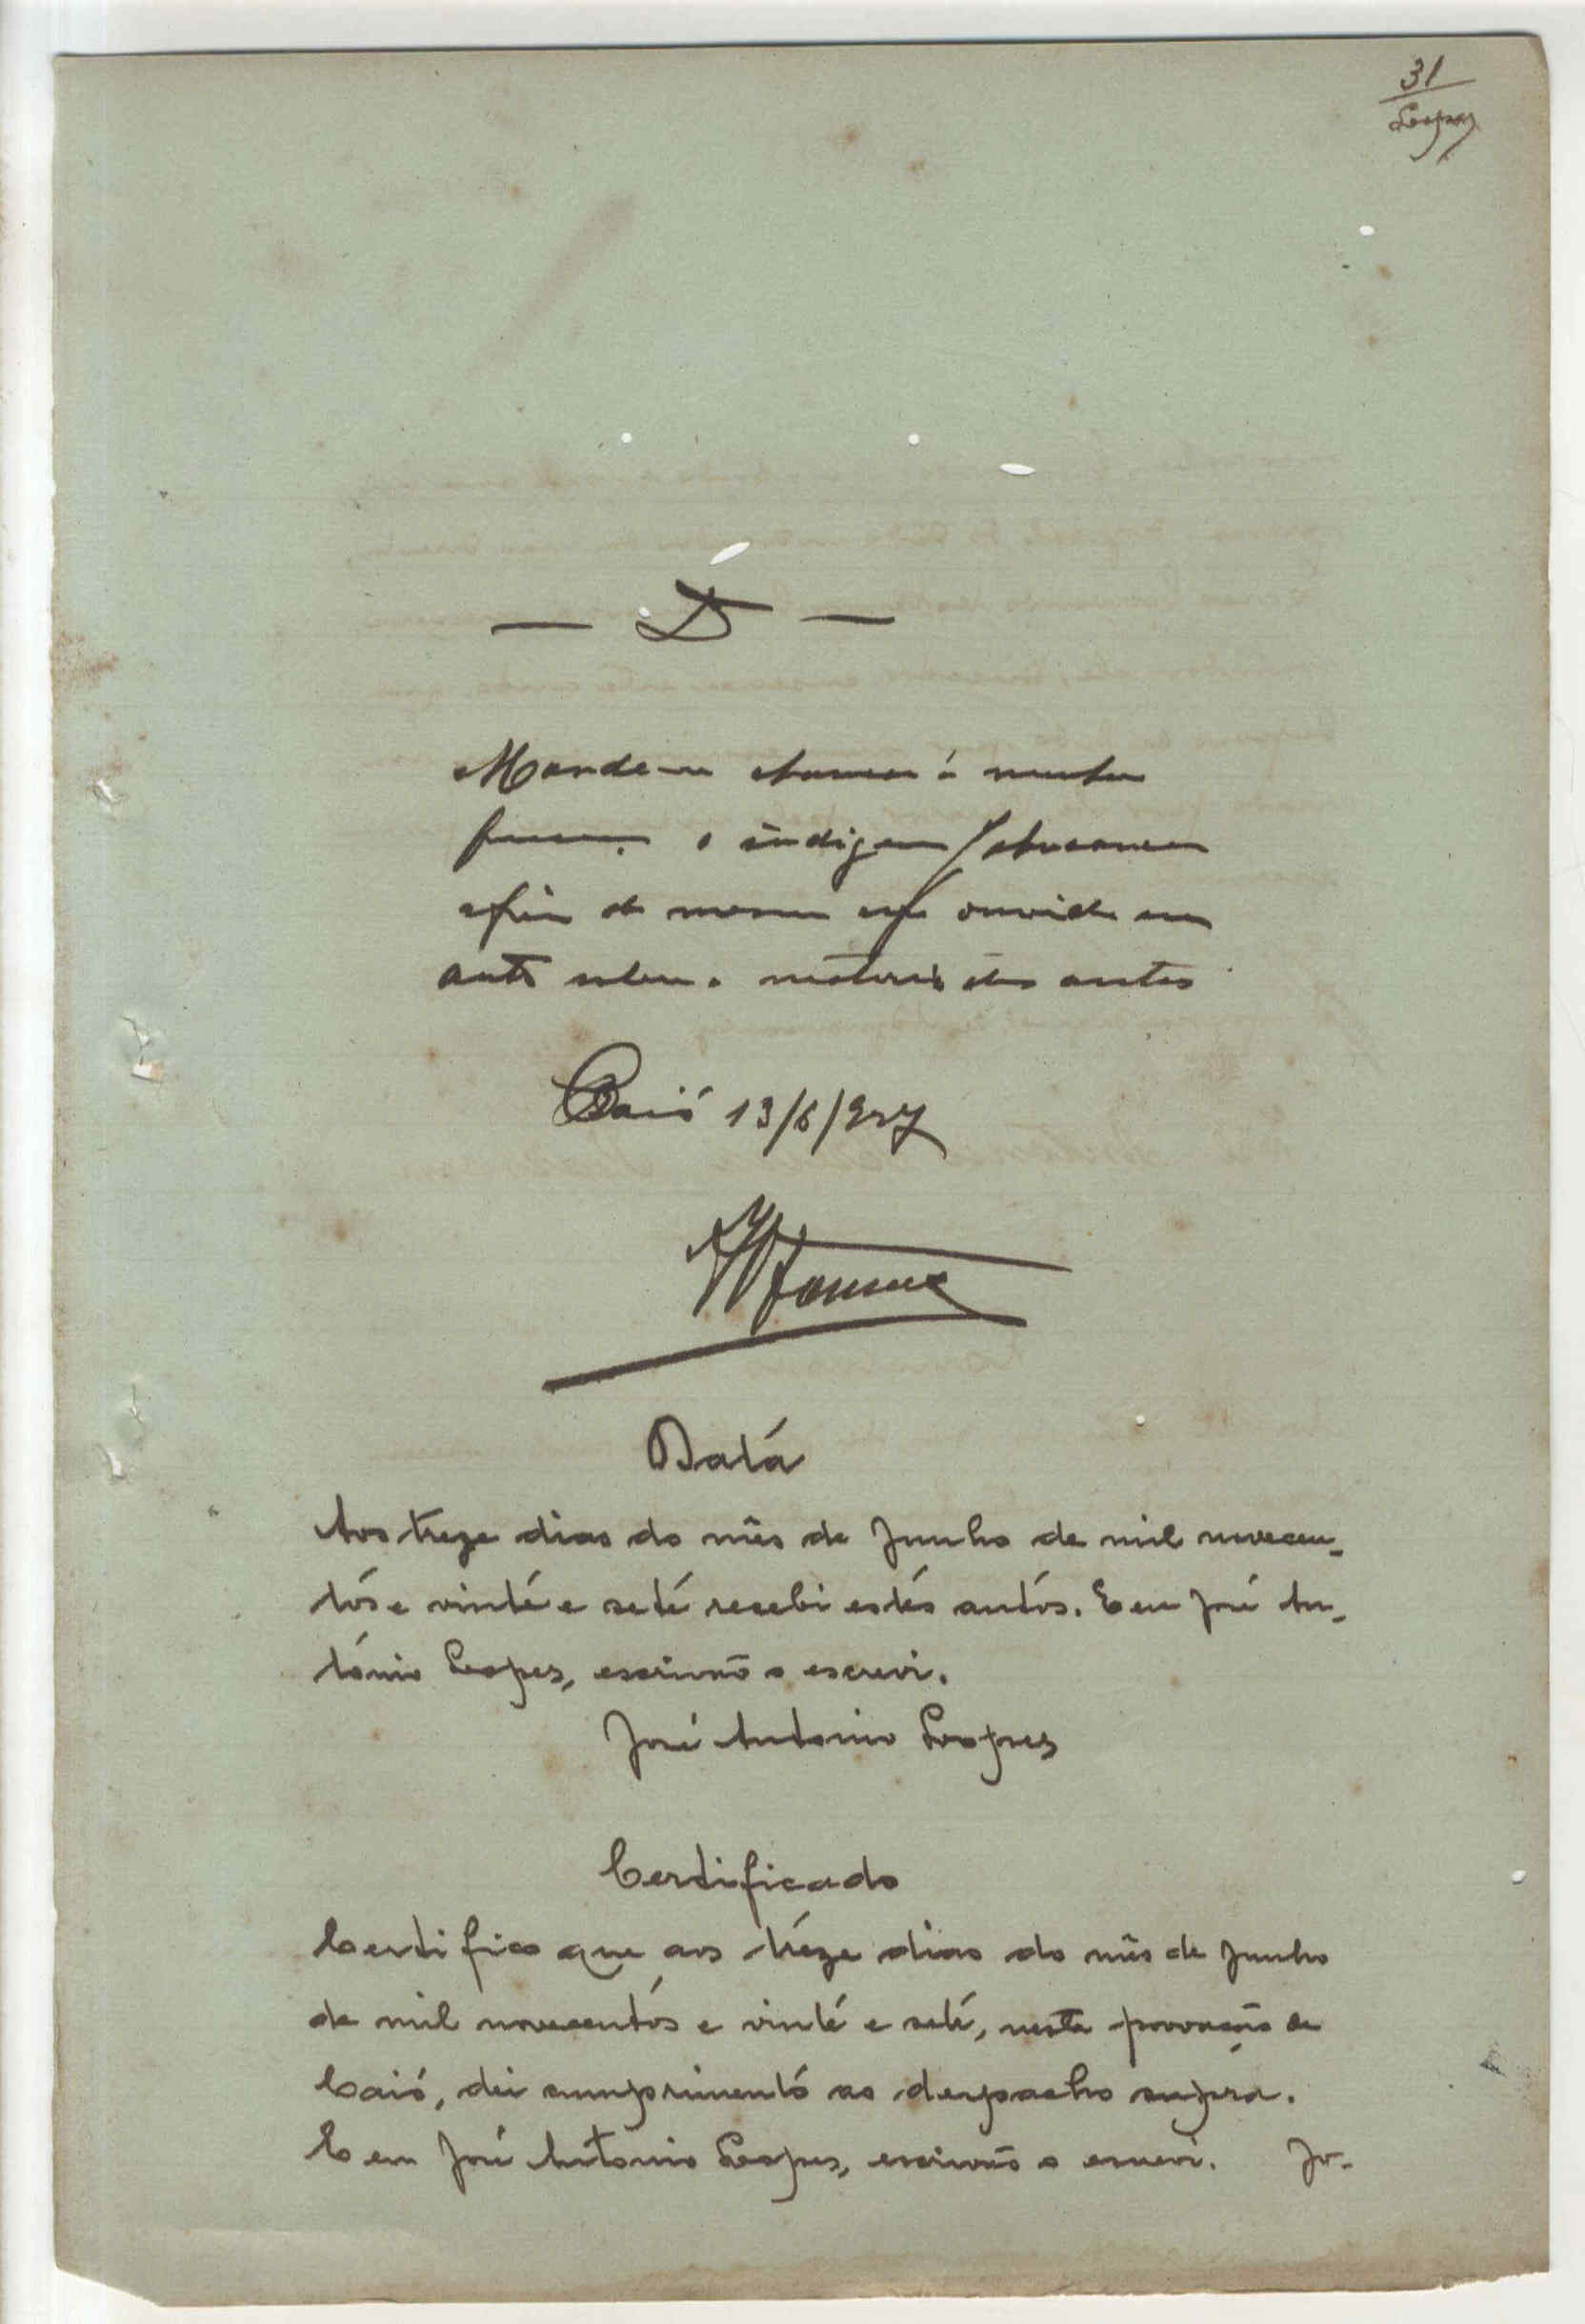 31
Lopes
— D —
Mande-se chamar á minha
presença o indigena
afim do mesmo ser ouvido em
auto sobre a materia dos autos
Caió 13/6/927
Datá
Aos treze dias do mês de Junho de mil novecen-
tós e vinté e seté recebi estés autós. E eu José An-
tónio Lopes, escrivão o escrevi.
José Antonio Lopes
Certificado
Certifico que aos tréze dias do mês de Junho
de mil novecentós e vinté e seté, nesta povoação de
Caió, dei cumprimentó ao despacho supra.
E eu José Antonio Lopes, escrivão o escrevi. Jo-